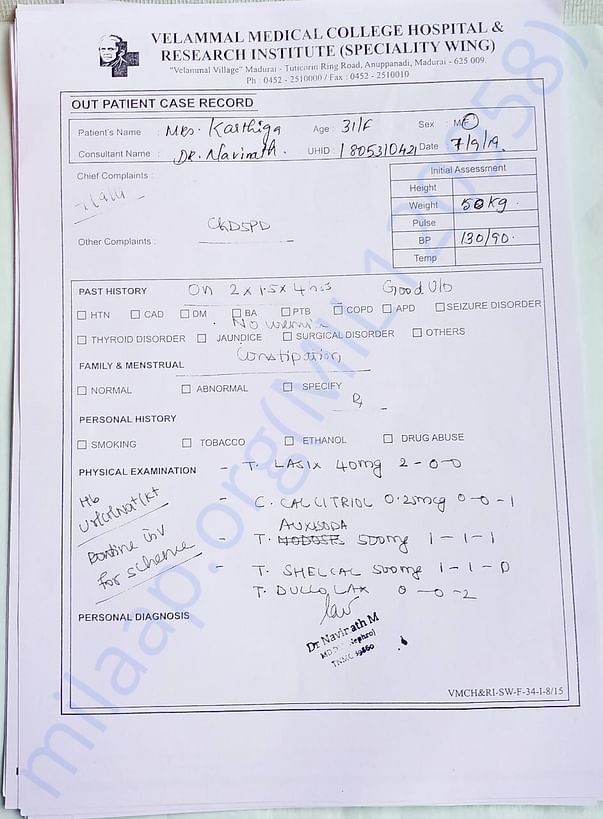 VELAMMAL MEDICAL COLLEGE HOSPITAL &
RESEARCH INSTITUTE (SPECIALITY WING)
"Velammal Village" Madurai - Tuticorin Ring Road, Anuppanadi, Madurai - 625 009.
Ph : 0452 - 2510000 / Fax : 0452 - 2510010
OUT PATIENT CASE RECORD
Patient's Name : Mrs. Karthiga Age : 31/F Sex : M/F
Consultant Name : DR. Navinath. UHID : 1805310421 Date 7/9/19.
Chief Complaints :
Initial Assessment
Height
Weight 50kg.
Pulse
BP 130/90.
Temp
7/9/19
CKD5PD
Other Complaints :
PAST HISTORY on 2 x 1.5 x 4 hrs Good U/o
HTN CAD DM BA PTB COPD APD SEIZURE DISORDER
No uremic
THYROID DISORDER JAUNDICE SURGICAL DISORDER OTHERS
Constipation
FAMILY & MENSTRUAL
NORMAL ABNORMAL SPECIFY
Rx
PERSONAL HISTORY
SMOKING TOBACCO ETHANOL DRUG ABUSE
PHYSICAL EXAMINATION - T. LASIX 40mg 2-0-0
Hb
Ur/Cr/Na+/K+
- C. CALCITRIOL 0.25mcg 0-0-1
AUXISODA
Routine inv
- T. NODOSIS 500mg 1-1-1
for scheme
- T. SHELCAL 500mg 1-1-0
T. DULCOLAX 0-0-2
PERSONAL DIAGNOSIS
Dr Navinath M
VMCH&RI-SW-F-34-I-8/15
milaap.org(MIIL120958)